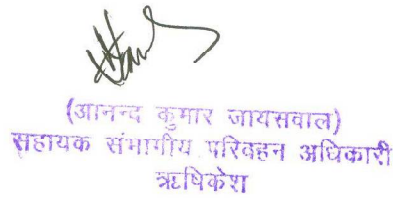 (आनन्द कुमार जायसवाल)
सहायक संभागीय परिवहन अधिकारी
ऋषिकेश